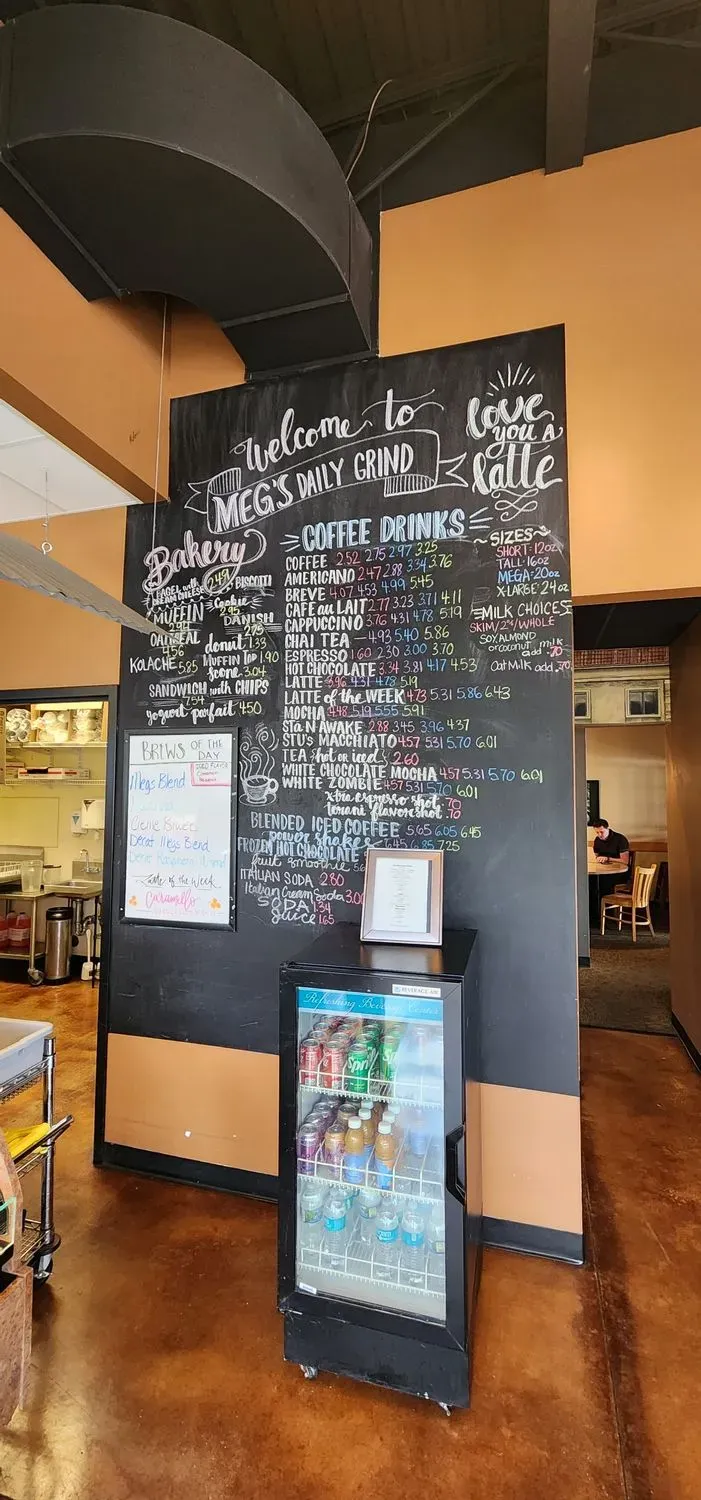 Welcome to
MEG'S DAILY GRIND
love
you a
latte
Bakery
BAGEL with
CREAM CHEESE 2.49
BISCOTTI
MUFFIN
Cookie
2.95
DANISH
OATMEAL
4.56
donut 1.33
KOLACHE 5.85
MUFFIN Top 1.90
Scone 3.04
SANDWICH with CHIPS
7.54
yogurt parfait 4.50
COFFEE DRINKS
COFFEE 2.52 2.75 2.97 3.25
AMERICANO 2.47 2.88 3.34 3.76
BREVE 4.07 4.53 4.99 5.45
CAFÉ au LAIT 2.77 3.23 3.71 4.11
CAPPUCCINO 3.76 4.31 4.78 5.19
CHAI TEA — 4.93 5.40 5.86
ESPRESSO 1.60 2.30 3.00 3.70
HOT CHOCOLATE 3.34 3.81 4.17 4.53
LATTE 3.96 4.31 4.78 5.19
LATTE of the WEEK 4.73 5.31 5.86 6.43
MOCHA 4.48 5.19 5.55 5.91
Sta N AWAKE 2.88 3.45 3.96 4.37
STU'S MACCHIATO 4.57 5.31 5.70 6.01
TEA hot or iced 2.60
WHITE CHOCOLATE MOCHA 4.57 5.31 5.70 6.01
WHITE ZOMBIE 4.57 5.31 5.70 6.01
xtra espresso shot .70
torani flavor shot .70
BLENDED ICED COFFEE 5.65 6.05 6.45
power shakes 6.45 6.85 7.25
FROZEN HOT CHOCOLATE
fruit smoothie
ITALIAN SODA 2.80
Italian Cream Soda 3.00
SODA 1.34
juice 1.65
SIZES
SHORT·12oz
TALL·16oz
MEGA·20oz
X-LARGE·24oz
MILK CHOICES
SKIM/2%/WHOLE
SOY, ALMOND
or coconut milk
add .70
Oat Milk add .70
BREWS OF THE DAY
Megs Blend
Decaf Megs Blend
Latte of the Week
Caramello
Refreshing Beverage Center
BEVERAGE AIR
Sprite